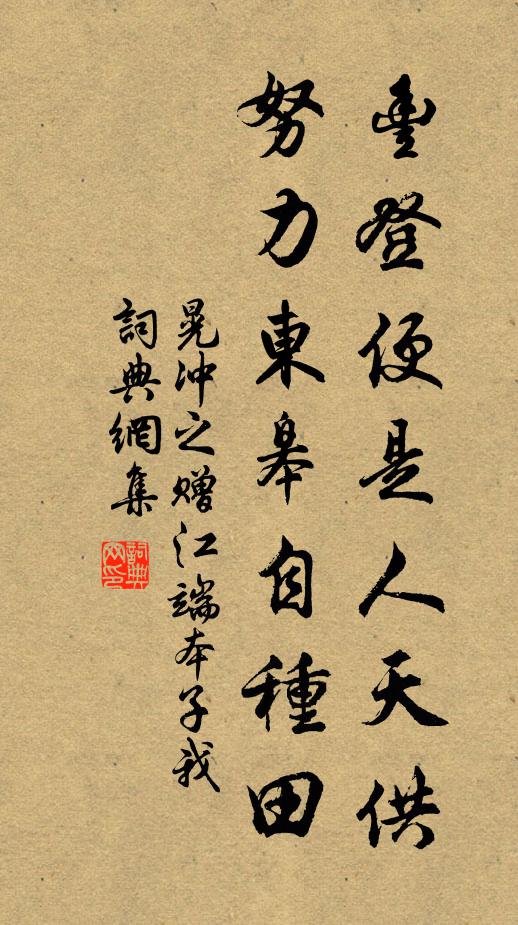 豊登便是人天供
努力東皋自種田
晁冲之贈江端本子我
詞典網集
詞典網印